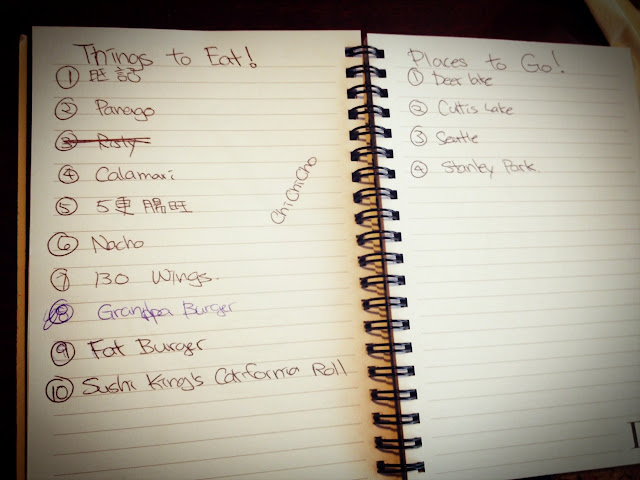 Things to Eat!
① 旺記
② Panago
③ Risty
④ Calamari
⑤ 5更腸旺
⑥ Nacho
⑦ 130 Wings.
⑧ Grandpa Burger
⑨ Fat Burger
⑩ Sushi King's California Roll
Chi Chi Cho
Places to Go!
① Deer lake
② Cultis Lake
③ Seattle
④ Stanley Park.